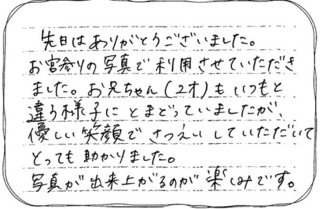 先日はありがとうございました。
お宮参りの写真で利用させていただき
ました。お兄ちゃん(2才)もいつもと
違う様子にとまどっていましたが、
優しい笑顔でさつえいしていただいて
とっても助かりました。
写真が出来上がるのが楽しみです。